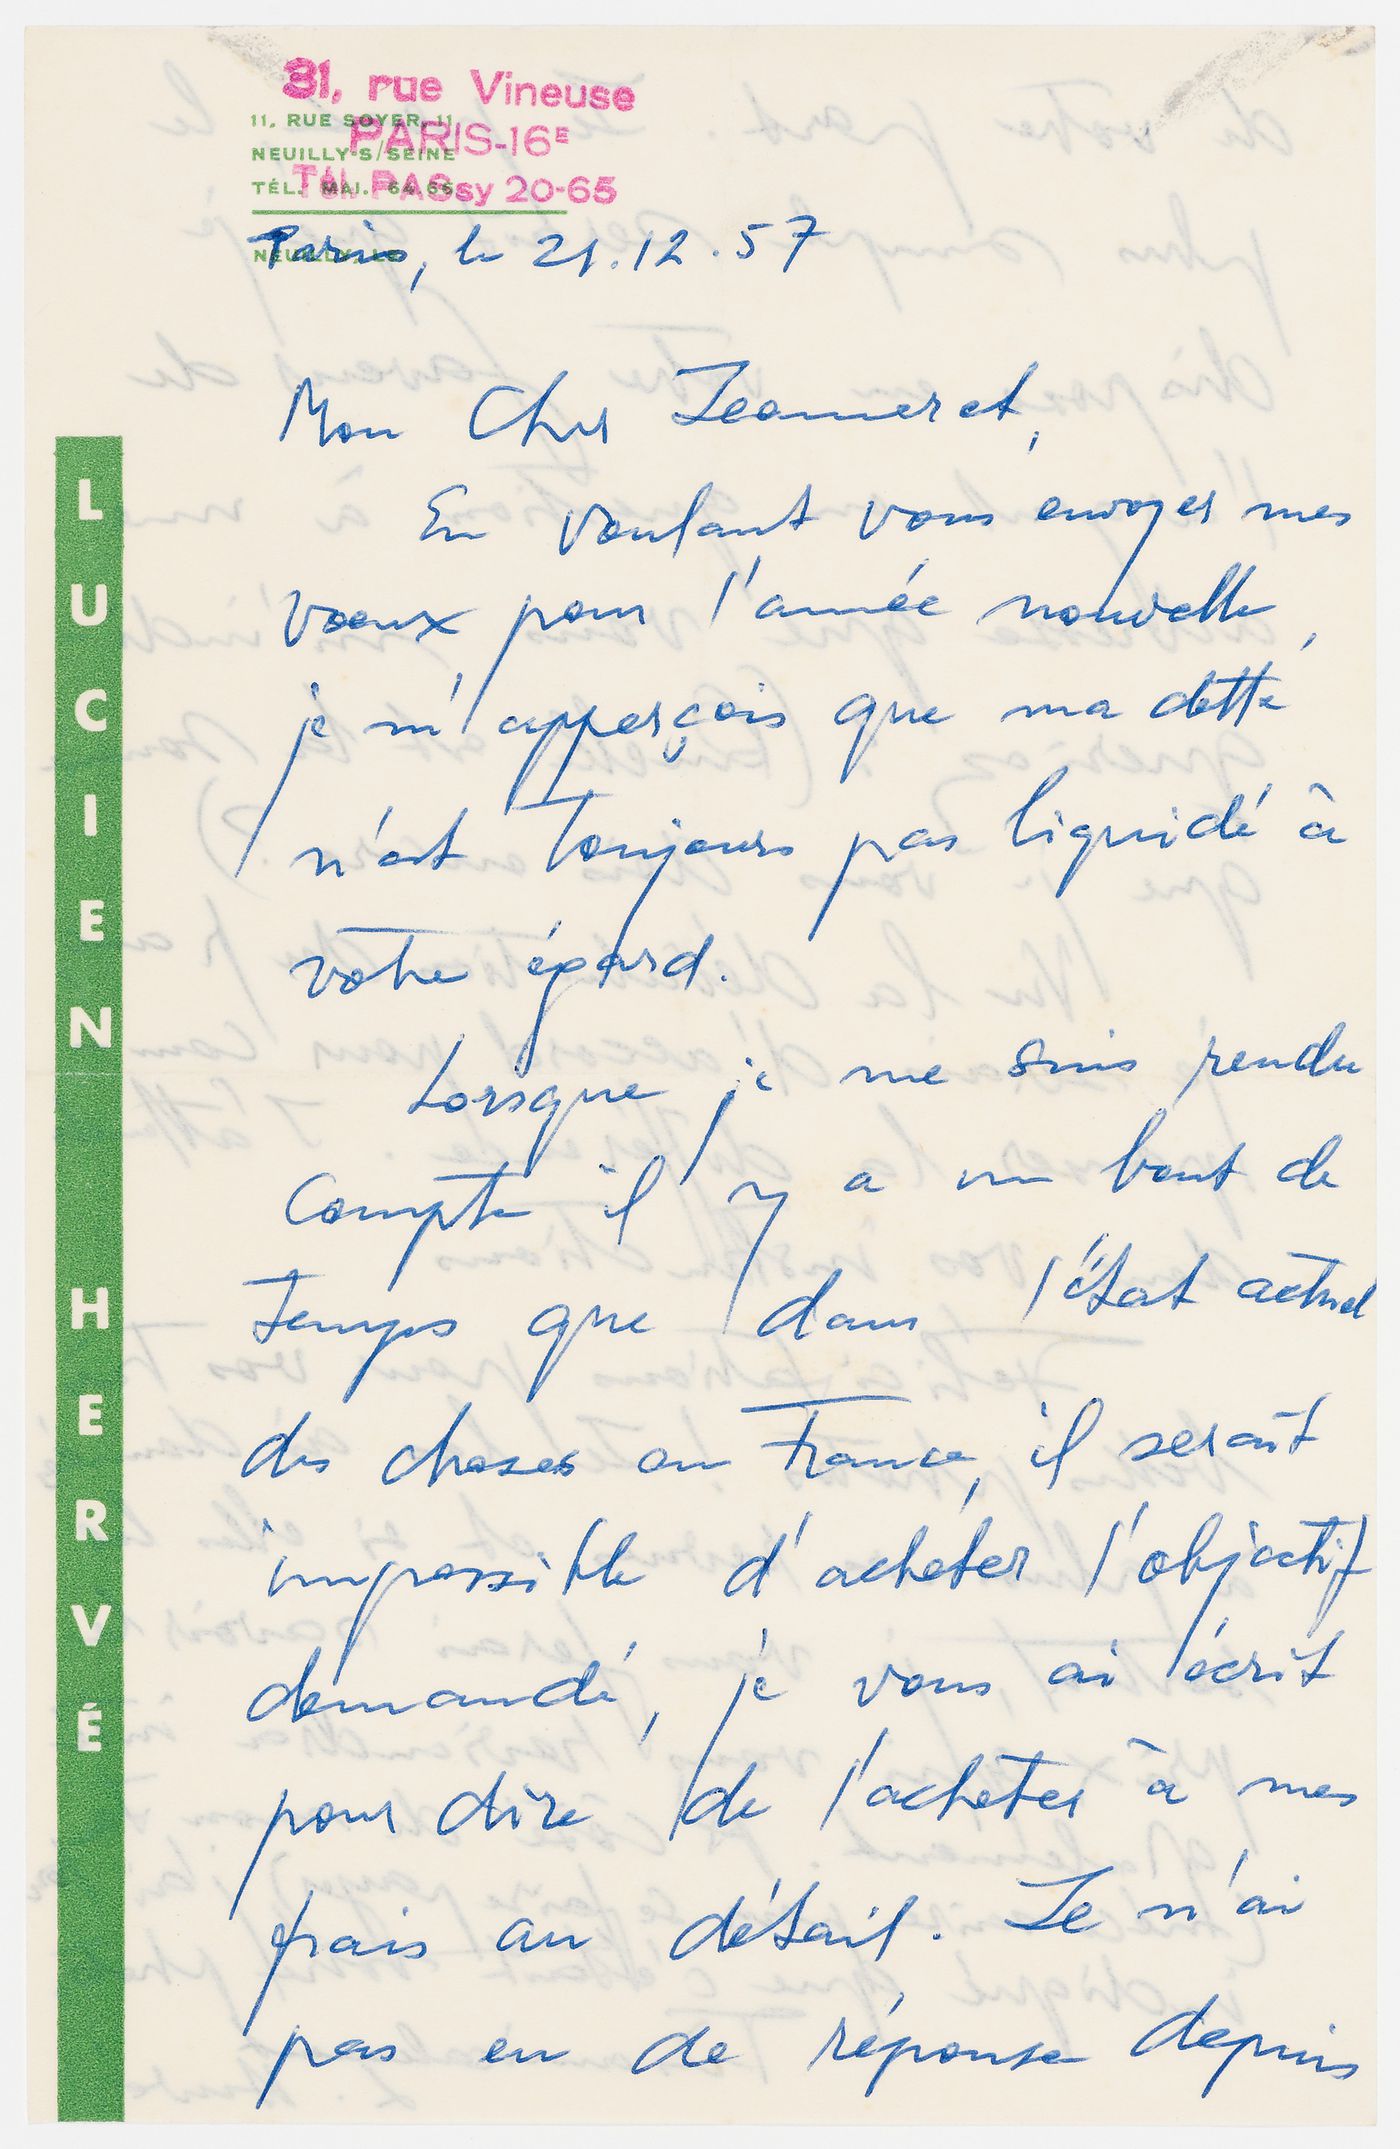 31, rue Vineuse
PARIS-16E
Tél. PASsy 20-65
11, RUE SOYER, 11
NEUILLY S/SEINE
TÉL. MAI. 64.65
NEUILLY, LE
Paris, le 21.12.57
LUCIEN HERVÉ
Mon Cher Jeanneret,
En voulant vous envoyer mes
voeux pour l'année nouvelle,
je m'apperçois que ma dette
n'est toujours pas liquidé à
votre égard.
Lorsque je me suis rendu
compte il y a un bout de
temps que dans l'état actuel
des choses en France, il serait
impossible d'acheter l'objectif
demandé, je vous ai écrit
pour dire de l'acheter à mes
frais au détail. Je n'ai
pas eu de réponse depuis